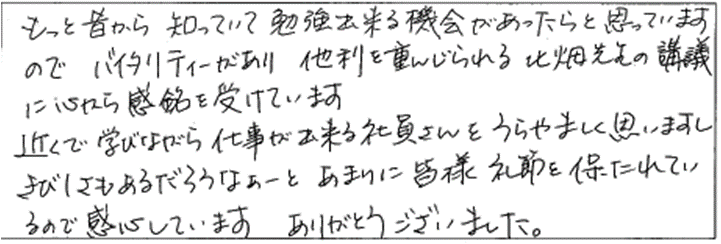 もっと昔から 知っていて 勉強出来る機会があったらと思っています
ので バイタリティーがあり 他利を重んじられる 北畑先生の講議
に心から感銘を受けています
近くで学びながら 仕事が出来る社員さんを うらやましく思いますし
きびしさもあるだろうなぁーと あまりに 皆様 礼節を保たれてい
るので感心しています ありがとうございました。